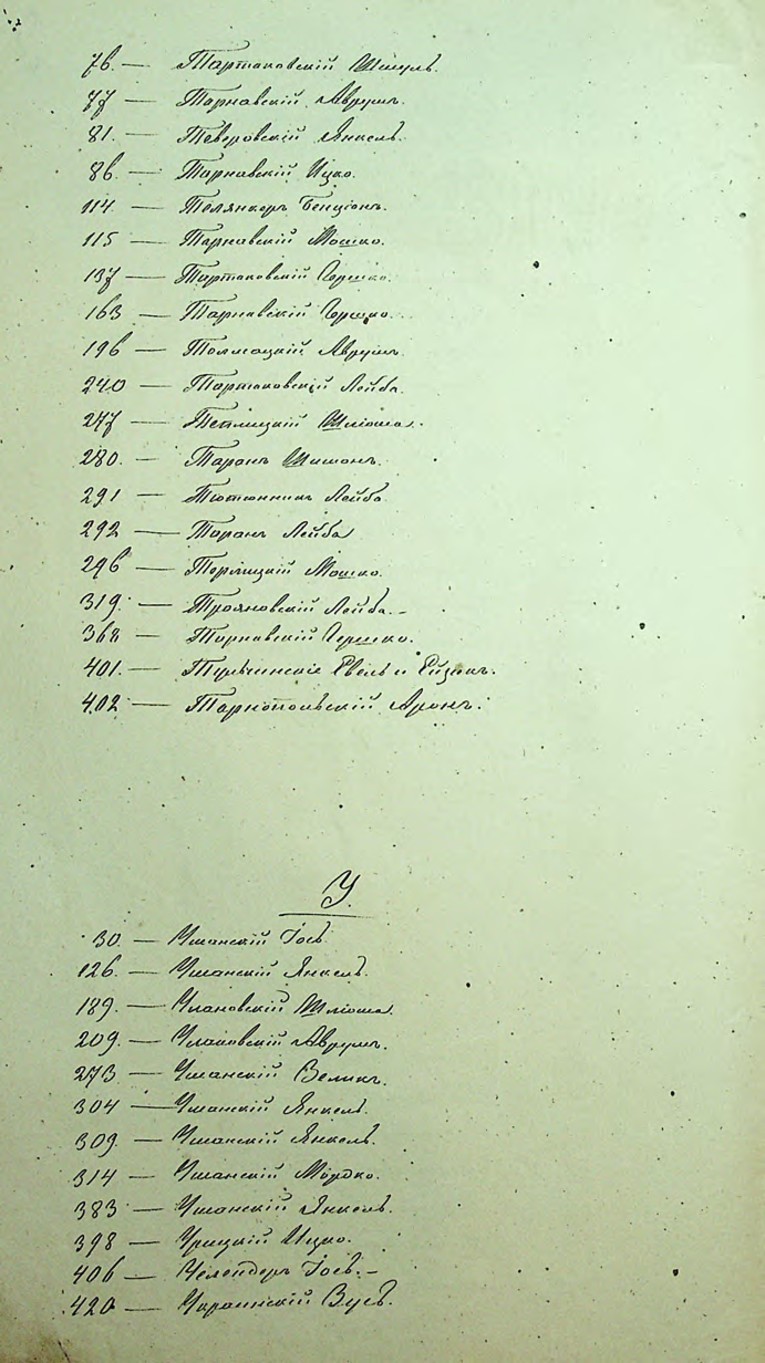 76. — Тартаковскій Шмуль.
77 — Тарнавскій Аврумъ.
81. — Теверовскій Янкель.
86. — Тарнавскій Ицко.
114. — Телянкеръ Бенціонъ.
115 — Тарнавскій Мошко.
137 — Тартаковскій Гершко.
163 — Тарнавскій Гершко.
196 — Аврумъ.
240 — Тартаковскій Лейба.
247 — Теплицкій Шліома.
280. — Таранъ Шимонъ.
291 — Тютюнникъ Лейба
292 — Таранъ Лейба
296 — Мошко.
319. — Трояновскій Лейба. —
368 — Тарнавскій Гершко.
401. — Евель и Ейзикъ.
402 — Тарнопольскій Аронъ.
У.
30. — Уманскій Іось.
126. — Уманскій Янкель.
189. — Улановскій Шліома.
209. — Улановскій Аврумъ.
273 — Уманскій Великъ.
304 — Уманскій Янкель.
309. — Уманскій Янкель.
314 — Уманскій Мордко.
383 — Уманскій Янкель.
398 — Урицкій Ицко.
406 — Іось. —
420 — Украинскій